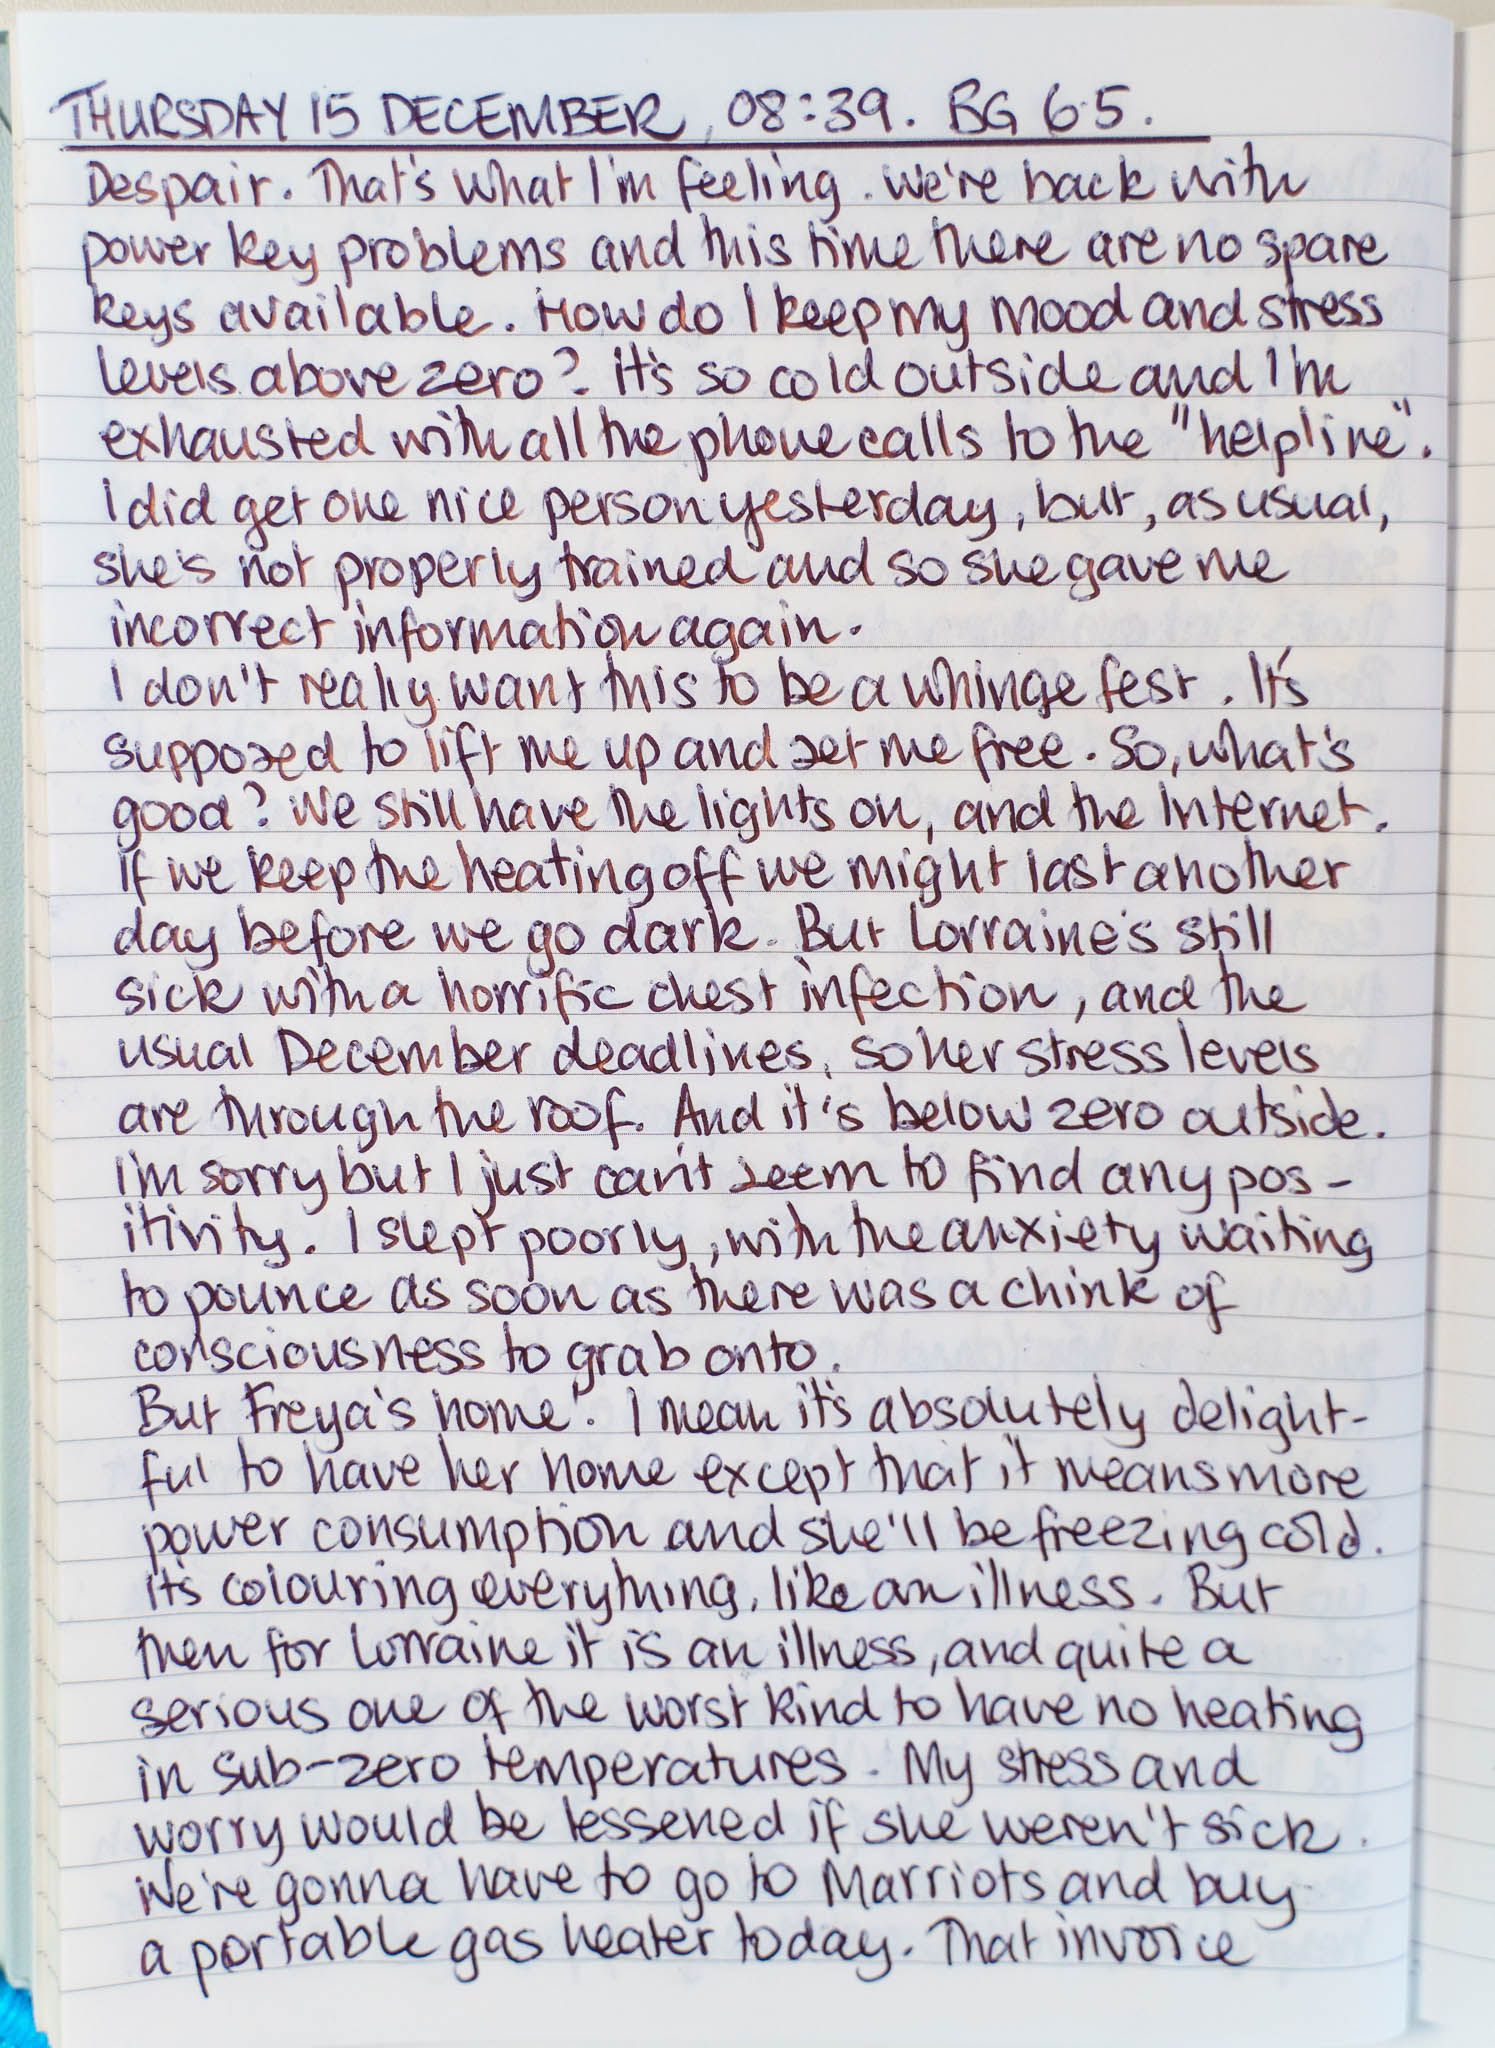 THURSDAY 15 DECEMBER, 08:39. BG 6.5.
Despair. That's what I'm feeling. We're back with
power key problems and this time there are no spare
keys available. How do I keep my mood and stress
levels above zero? It's so cold outside and I'm
exhausted with all the phone calls to the "helpline".
I did get one nice person yesterday, but, as usual,
she's not properly trained and so she gave me
incorrect information again.
I don't really want this to be a whinge fest. It's
supposed to lift me up and set me free. So, what's
good? We still have the lights on, and the Internet.
If we keep the heating off we might last another
day before we go dark. But Lorraine's still
sick with a horrific chest infection, and the
usual December deadlines, so her stress levels
are through the roof. And it's below zero outside.
I'm sorry but I just can't seem to find any pos-
itivity. I slept poorly, with the anxiety waiting
to pounce as soon as there was a chink of
consciousness to grab onto.
But Freya's home! I mean it's absolutely delight-
ful to have her home except that it means more
power consumption and she'll be freezing cold.
It's colouring everything, like an illness. But
then for Lorraine it is an illness, and quite a
serious one of the worst kind to have no heating
in sub-zero temperatures. My stress and
worry would be lessened if she weren't sick.
We're gonna have to go to Marriots and buy
a portable gas heater today. That invoice